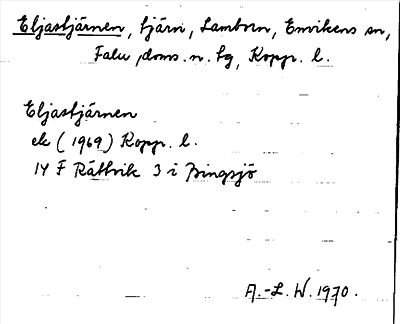 Eljastjärnen, tjärn, Lamborn, Envikens sn,
Falu doms. n. tg, Kopp. l.
Eljastjärnen
ek (1969) Kopp. l.
14 F Rättvik 3 i Bingsjö
A.-L. W. 1970.